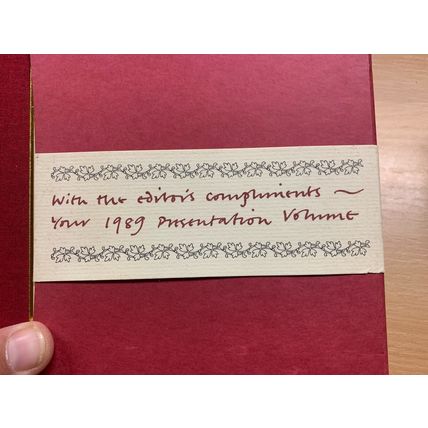 With the editor's compliments ~
Your 1989 Presentation Volume